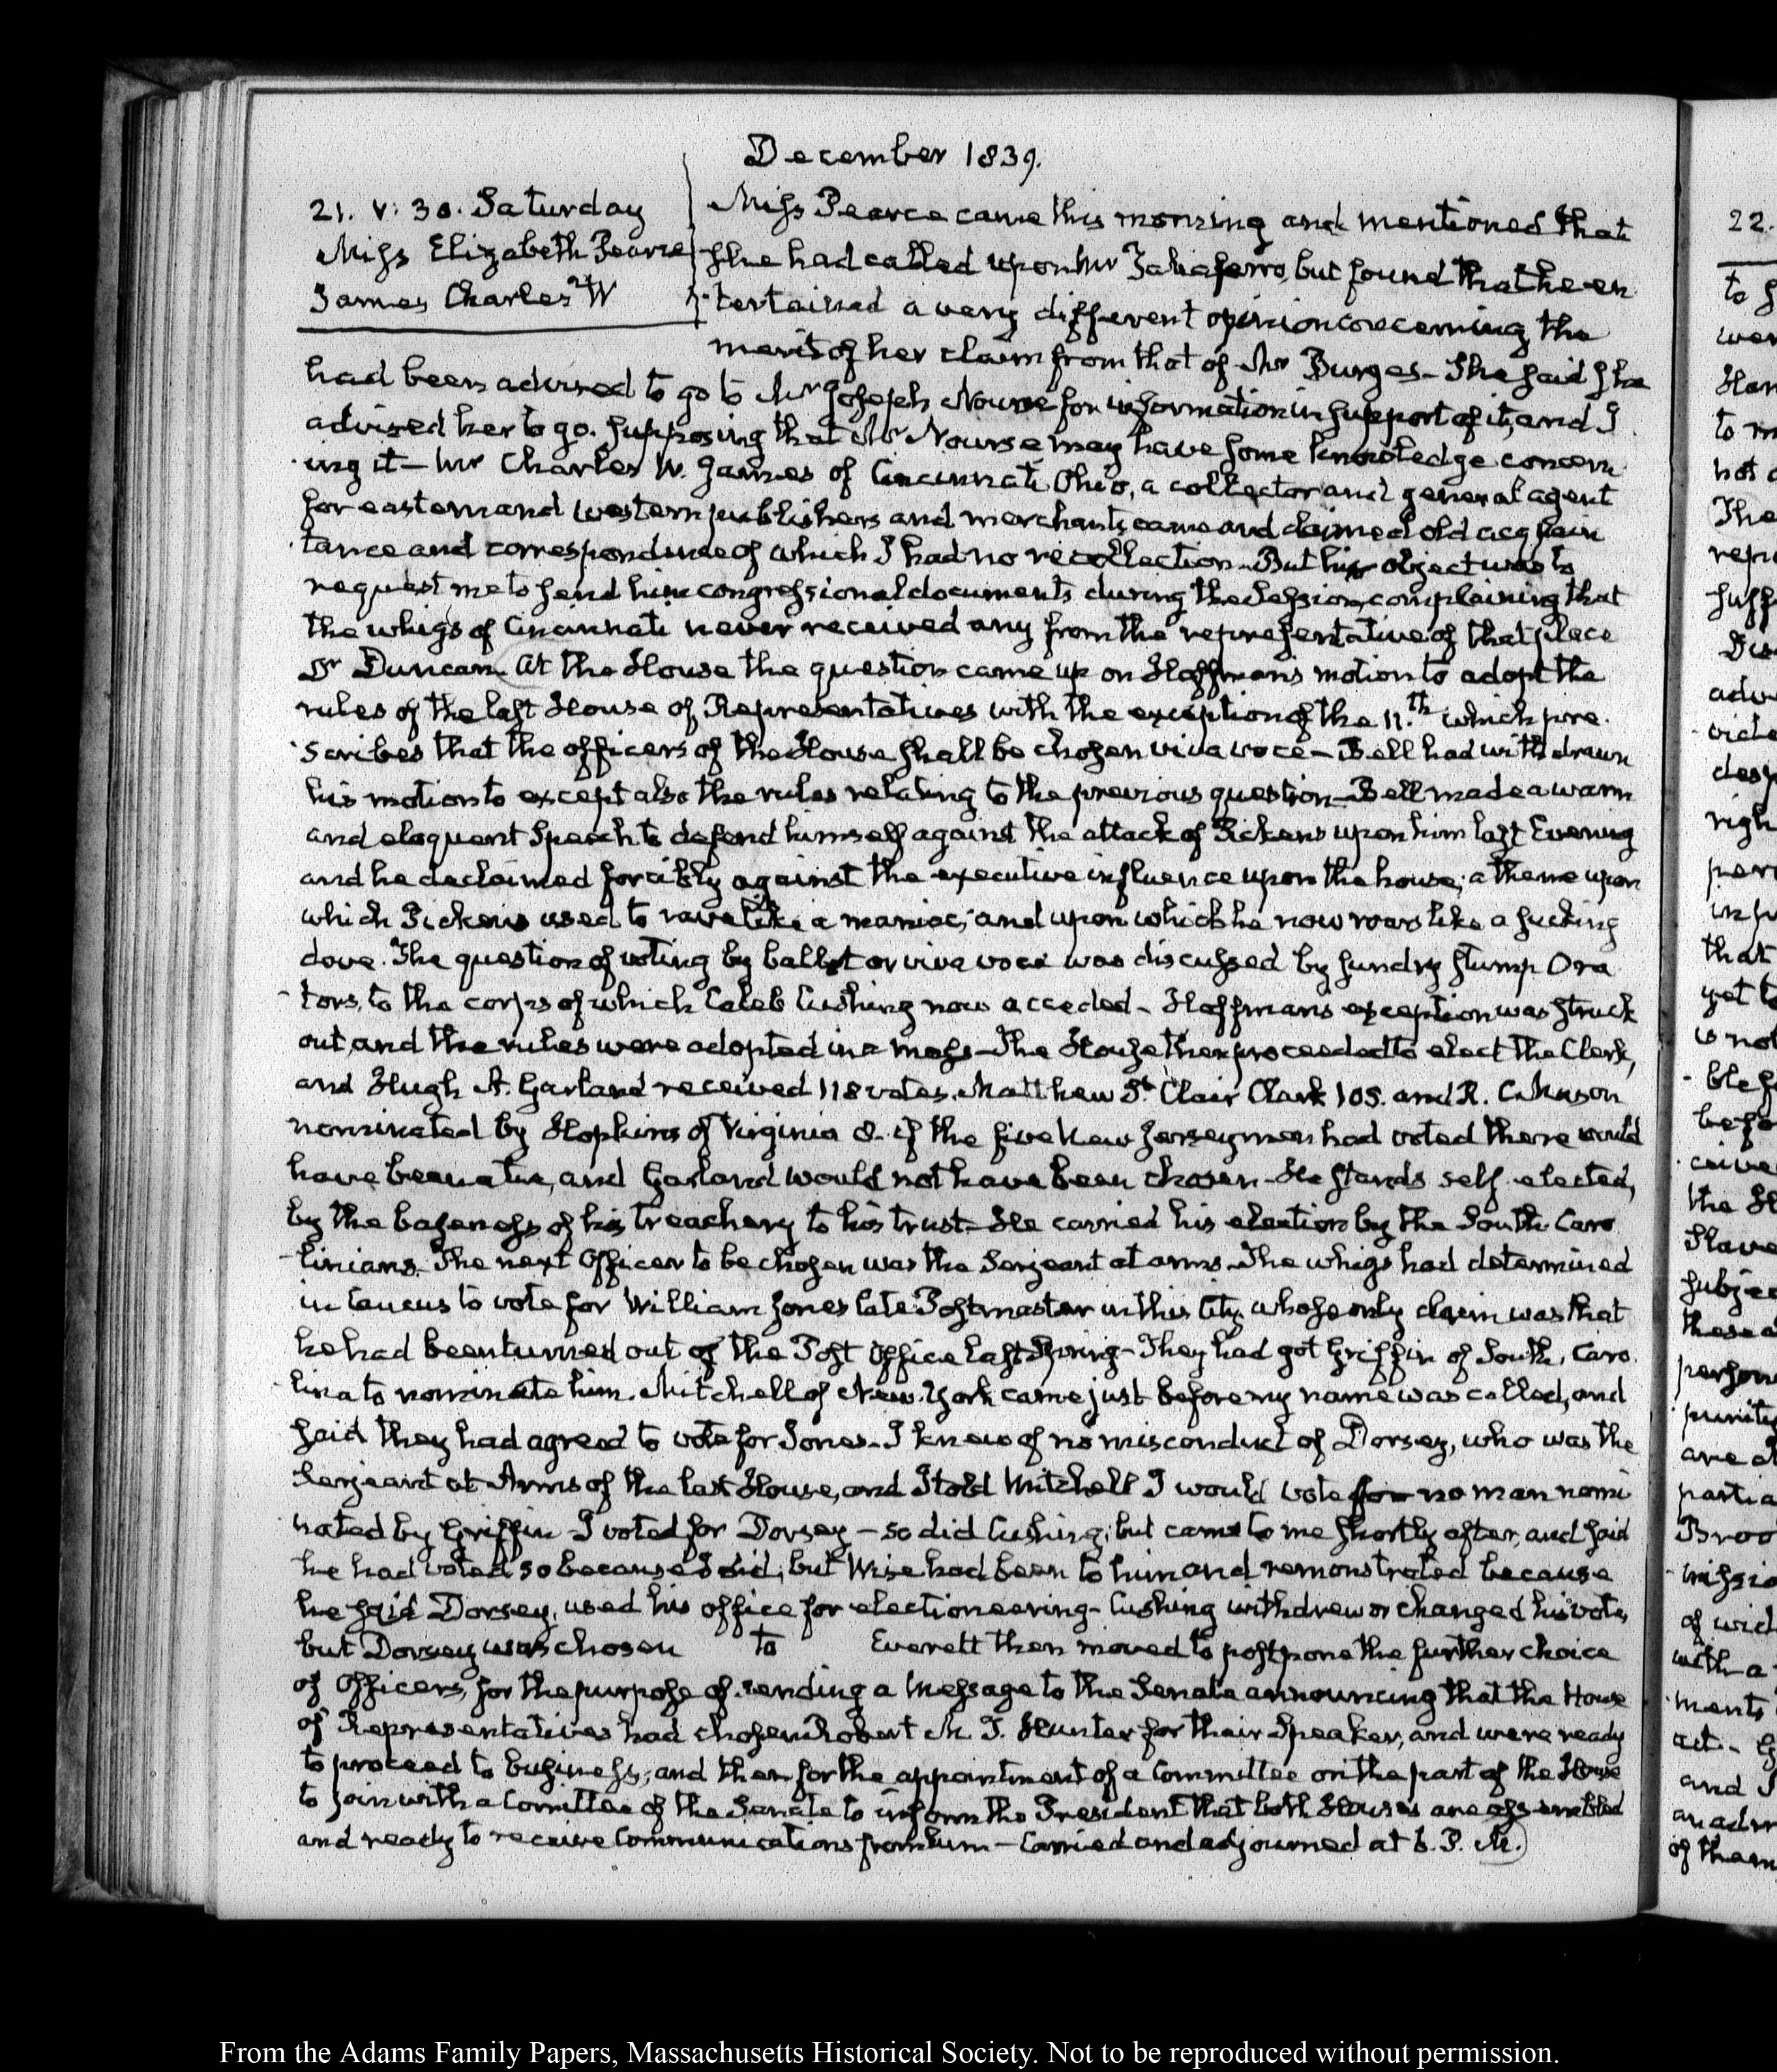 December 1839.
21. V: 30. Saturday
Miss Elizabeth Pearce
James Charles W
Miss Pearce came this morning and mentioned that
she had called upon Mr Taliaferro, but found that he en
tertained a very different opinion concerning the
merits of her claim from that of Mr Burges- She said she
had been advised to go to Mr Joseph Nourse for information in support of it, and I
advised her to go. supposing that Mr Nourse may have some knowledge concern
ing it- Mr Charles W. James of Cincinnati Ohio, a collector and general agent
for eastern and western publishers and merchants came and claimed old acquain
tance and correspondence of which I had no recollection- But his object was to
request me to send him congressional documents during the Session, complaining that
the whigs of Cincinnati never received any from the representative of that place
Dr Duncan. At the House the question came up on Hoffman's motion to adopt the
rules of the last House of Representatives with the exception of the 11.th which pre.
scribes that the officers of the House shall be chosen viva voce- Bell had withdrawn
his motion to except also the rules relating to the previous question- Bell made a warm
and eloquent Speech to defend himself against the attack of Pickens upon him last Evening
and he declaimed forcibly against the executive influence upon the house; a theme upon
which Pickens used to rave like a maniac; and upon which he now roars like a sucking
dove. The question of voting by ballot or viva voce was discussed by sundry stump Ora
tors, to the corps of which Caleb Cushing now acceded- Hoffman's exception was struck
out, and the rules were adopted in a mass- The House then proceeded to elect the Clerk,
and Hugh A. Garland received 118 votes. Matthew St. Clair Clark 105. and R. C. Mason
nominated by Hopkins of Virginia 8- if the five New Jersey men had voted there would
have been a tie, and Garland would not have been chosen- He stands self-elected,
by the baseness of his treachery to his trust- He carried his election by the South Caro
linians- The next Officer to be chosen was the Serjeant at arms- The whigs had determined
in Caucus to vote for William Jones late Postmaster in this City whose only claim was that
he had been turned out of the Post Office last Spring- They had got Griffin of South, Caro.
lina to nominate him. Mitchell of New-York came just before my name was called, and
said they had agreed to vote for Jones- I knew of no misconduct of Dorsey, who was the
Serjeant at Arms of the last House, and I told Mitchell I would vote for no man nomi
nated by Griffin- I voted for Dorsey- so did Cushing; but came to me shortly after, and said
he had voted so because I did; but Wise had been to him and remonstrated because
he said Dorsey, used his office for electioneering- Cushing withdrew or changed his vote,
but Dorsey was chosen to Everett then moved to postpone the further choice
of Officers, for the purpose of sending a Message to the Senate announcing that the House
of Representatives had chosen Robert M. T. Hunter for their Speaker, and were ready
to proceed to business; and then for the appointment of a Committee on the part of the House
to join with a Comittee of the Senate to inform the President that both Houses are assembled
and ready to receive Communications from him- Carried and adjourned at 6. P. M.
22.
From the Adams Family Papers, Massachusetts Historical Society. Not to be reproduced without permission.